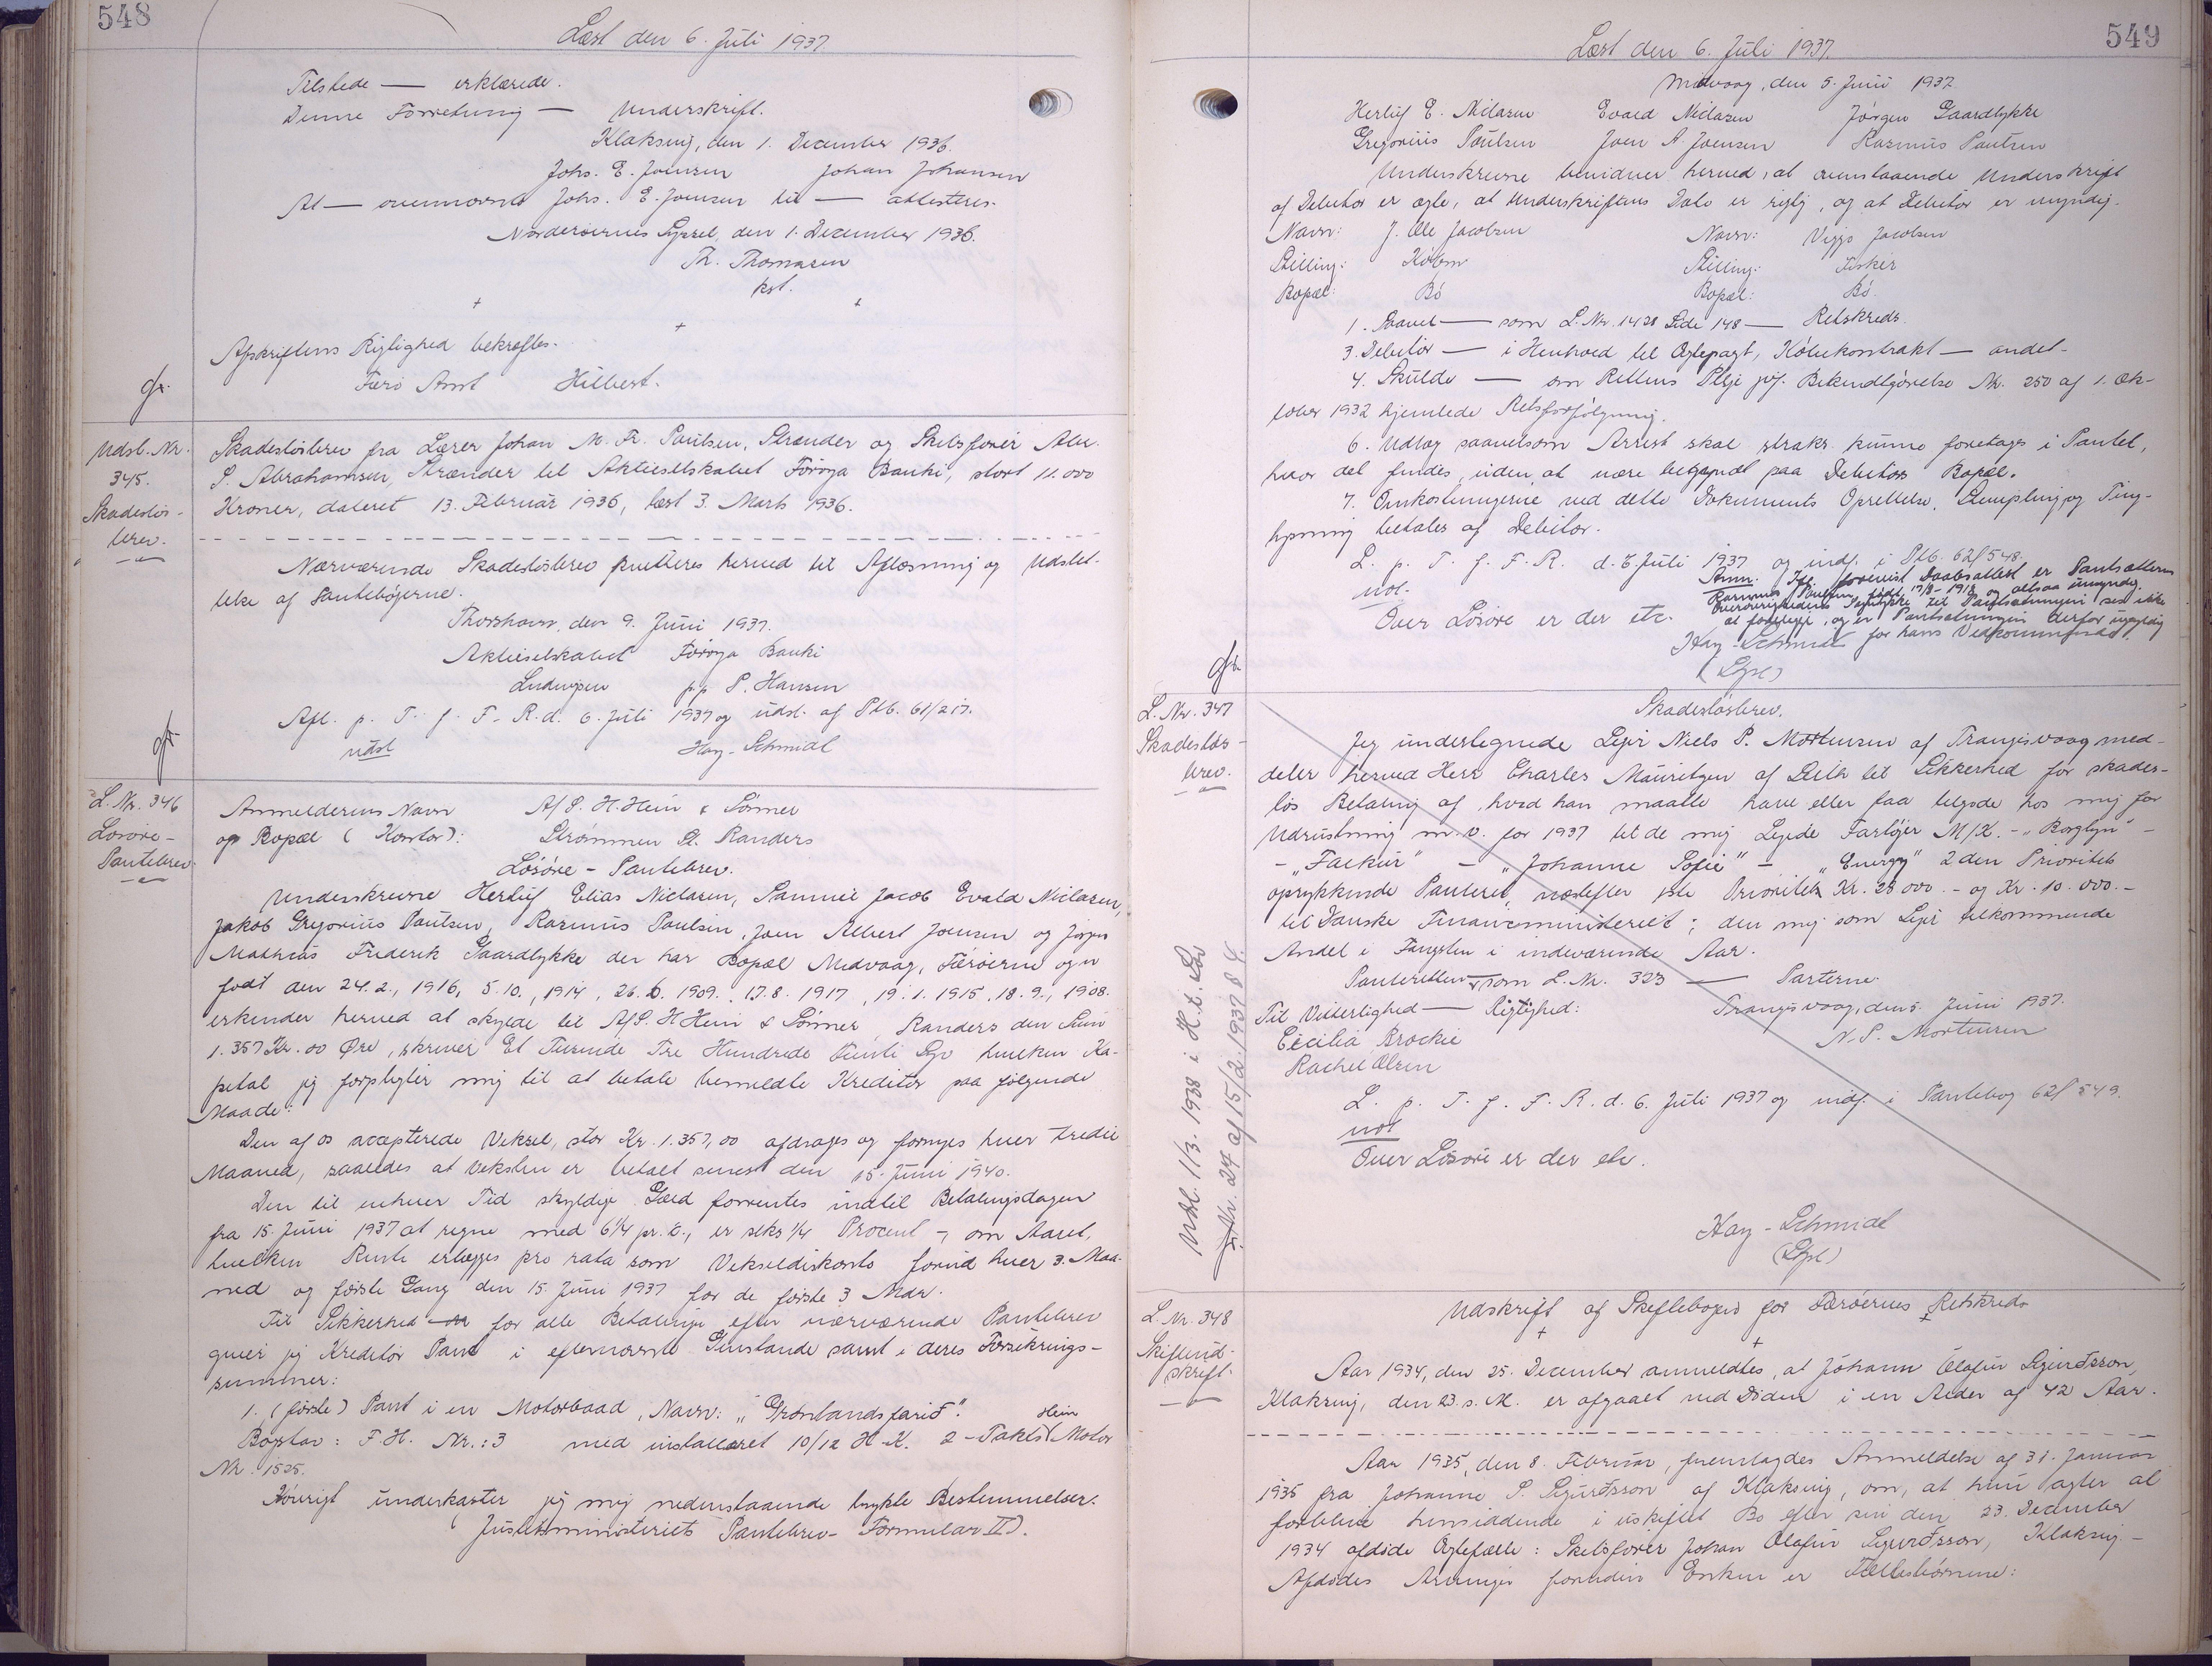 548
Læst den 6. Juli 1937
Tilstede — erklærede.
Denne Forretning — Underskrift.
Klaksvig, den 1. December 1936.
Johs. E. Joensen Johan Johansen
At — ovennævnte Johs. E. Joensen til — attesteres.
Norderøernes Syssel, den 1. December 1936.
Th. Thomasen
kst.
Afskriftens Rigtighed bekræftes.
Færø Amt Hilbert.
Udsl. Nr.
345.
Skadesløs-
brev.
Skadesløsbrev fra Lærer Johan M. Fr. Poulsen, Strænder og Skibsfører Abr.
S. Abrahamsen, Strænder til Aktieselskabet Føroya Banki, stort 11.000
Kroner, dateret 13. Februar 1936, læst 3. Marts 1936.
Nærværende Skadesløsbrev kvitteres herved til Aflæsning og Udslet-
telse af Pantebøgerne.
Thorshavn, den 9. Juni 1937.
Aktieselskabet Føroya Banki
Ludvigsen pp P. Hansen
Afl. p. T. f. F. R. d. 6. Juli 1937 og udsl. af Ptb. 61/217.
udsl Hay-Schmidt
L. Nr. 346
Løsøre-
Pantebrev.
Anmelderens Navn A/S. H. Hein & Sønner
og Bopæl (Kontor): Strømmen pr. Randers
Løsøre-Pantebrev.
Underskrevne Herluf Elias Niclasen, Samuel Jacob Evald Niclasen,
Jakob Gregorius Poulsen, Rasmus Poulsen, Joen Albert Joensen og Jørgen
Mathias Frederik Gaardlykke der har Bopæl Midvaag, Færøerne og er
født den 24. 2., 1916, 5. 10., 1914, 26. 6. 1909. 17. 8. 1917, 19. 1. 1915. 18. 9., 1908.
erkender herved at skylde til A/S. H Hein & Sønner, Randers den Sum
1.357 Kr. 00 Øre, skriver Et Tusinde Tre Hundrede Femti Syv hvilken Ka-
pital jeg forpligter mig til at betale bemeldte Kreditor paa følgende
Maade:
Den af os accepterede Veksel, stor Kr. 1.357,00 afdrages og fornyes hver tredie
Maaned, saaledes at Vekslen er betalt senest den 15. Juni 1940.
Den til enhver Tid skyldige Gæld forrentes indtil Betalingsdagen
fra 15. Juni 1937 at regne med 6 1/4 pr. c., er seks 1/4 Procent - om Aaret,
hvilken Rente erlægges pro rata som Vekseldiskonto forud hver 3. Maa-
ned og første Gang den 15. Juni 1937 for de første 3 Mdr.
Til Sikkerhed for alle Betalinger efter nærværende Pantebrev
giver jeg Kreditor Pant i efternævnte Genstande samt i deres Forsikrings-
summer:
1. (første) Pant i en Motorbaad, Navn: "Grønlandsfarið".
Bogstav: F. H. Nr.: 3 med installeret 10/12 H K. 2-Takts Hein Motor
Nr. 1525.
Iøvrigt underkaster jeg mig nedenstaaende trykte Bestemmelser.
Justitsministeriets Pantebrev-Formular II).
549
Læst den 6. Juli 1937.
Midvaag, den 5. Juni 1937
Herluf E. Niclasen Evald Niclasen Jørgen Gaardlykke
Gregorius Poulsen Joen A. Joensen Rasmus Poulsen
Underskrevne bevidner herved, at ovenstaaende Underskrift
af Debitor er ægte, at Underskriftens Dato er rigtig, og at Debitor er myndig.
Navn: J. Ole Jacobsen Navn: Viggo Jacobsen
Stilling: Købm Stilling: Fisker
Bopæl: Bø Bopæl: Bø.
1. — som L. Nr. 1428 Side 148 — Retskreds.
3. Debitor — i Henhold til Ægtepagt, Købekontrakt — andet-
4. Skulde — om Rettens Pleje jvf. Bekendtgørelse Nr. 250 af 1. Ok-
tober 1932 hjemlede Retsforfølgning.
6. Udlæg saavelsom Arrest skal straks kunne foretages i Pantet,
hvor det findes, uden at være begyndt paa Debitors Bopæl.
7. Omkostningerne ved dette Dokuments Oprettelse, Stempling og Ting-
lysning betales af Debitor.
L. p. T. f. F. R. d. 6. Juli 1937 og indf. i Ptb. 62/548.
not.
Anm. Ifl. forevist Daabsattest er Pantsætteren
Rasmus Poulsen født 17/8-1918 og altsaa umyndig.
Overøvrighedens Samtykke til Pantsætningen ses ikke
at foreligge, og er Pantsætningen derfor ugyldig
for hans Vedkommende.
Over Løsøre er der etc.
Hay-Schmidt
(Sgl.)
L. Nr. 347
Skadesløs-
brev.
Skadesløsbrev.
Jeg undertegnede Lejer Niels P. Mortensen af Trangisvaag med-
deler herved Herr Charles Mauritzen af Leith til Sikkerhed for skades-
løs Betaling af, hvad han maatte have eller faa tilgode hos mig for
Udrustning m. v. for 1937 til de mig Lejede Fartøjer M/K. - "Borglyn" -
- "Falkur" - "Johanne Sofie" - "Energy" 2den Prioritets
oprykkende Panteret, næstefter 1ste Prioritet Kr. 28 000.- og Kr. 10.000.-
til Danske Finansministeriet; den mig som Lejer tilkommende
Andel i Fangsten i indeværende Aar.
Panteretten - som L. Nr. 323 — Parterne.
Til Vitterlighed — Rigtighed: Trangisvaag, den 5. Juni 1937.
Cecilia Brockie N. P. Mortensen
Rachel Olsen
L. p. T. f. F. R. d. 6. Juli 1937 og indf. i Pantebog 62/549.
not
Over Løsøre er der etc.
Hay-Schmidt
(Sgl.)
Udsl. 1/3. 1938 i H. t. Lov
Nr. 27 af 15/2. 1937 § 8
L. Nr. 348
Skifteud-
skrift.
Udskrift af Skiftebogen for Færøernes Retskreds
Aar 1934, den 25. December anmeldtes, at Jóhann Ólafur Sigurðsson,
Klaksvig, den 23. s. M. er afgaaet ved Døden i en Alder af 42 Aar.
Aar 1935, den 8. Februar, fremlagdes Anmeldelse af 31. Januar
1935 fra Johanne S. Sigurðsson af Klaksvig, om, at hun agter at
forblive hensiddende i uskiftet Bo efter sin den 23. December
1934 afdøde Ægtefælle: Skibsfører Johan Olafur Sigurðsson, Klaksvig.-
Afdødes Arvinger foruden Enken er Fællesbørnene: